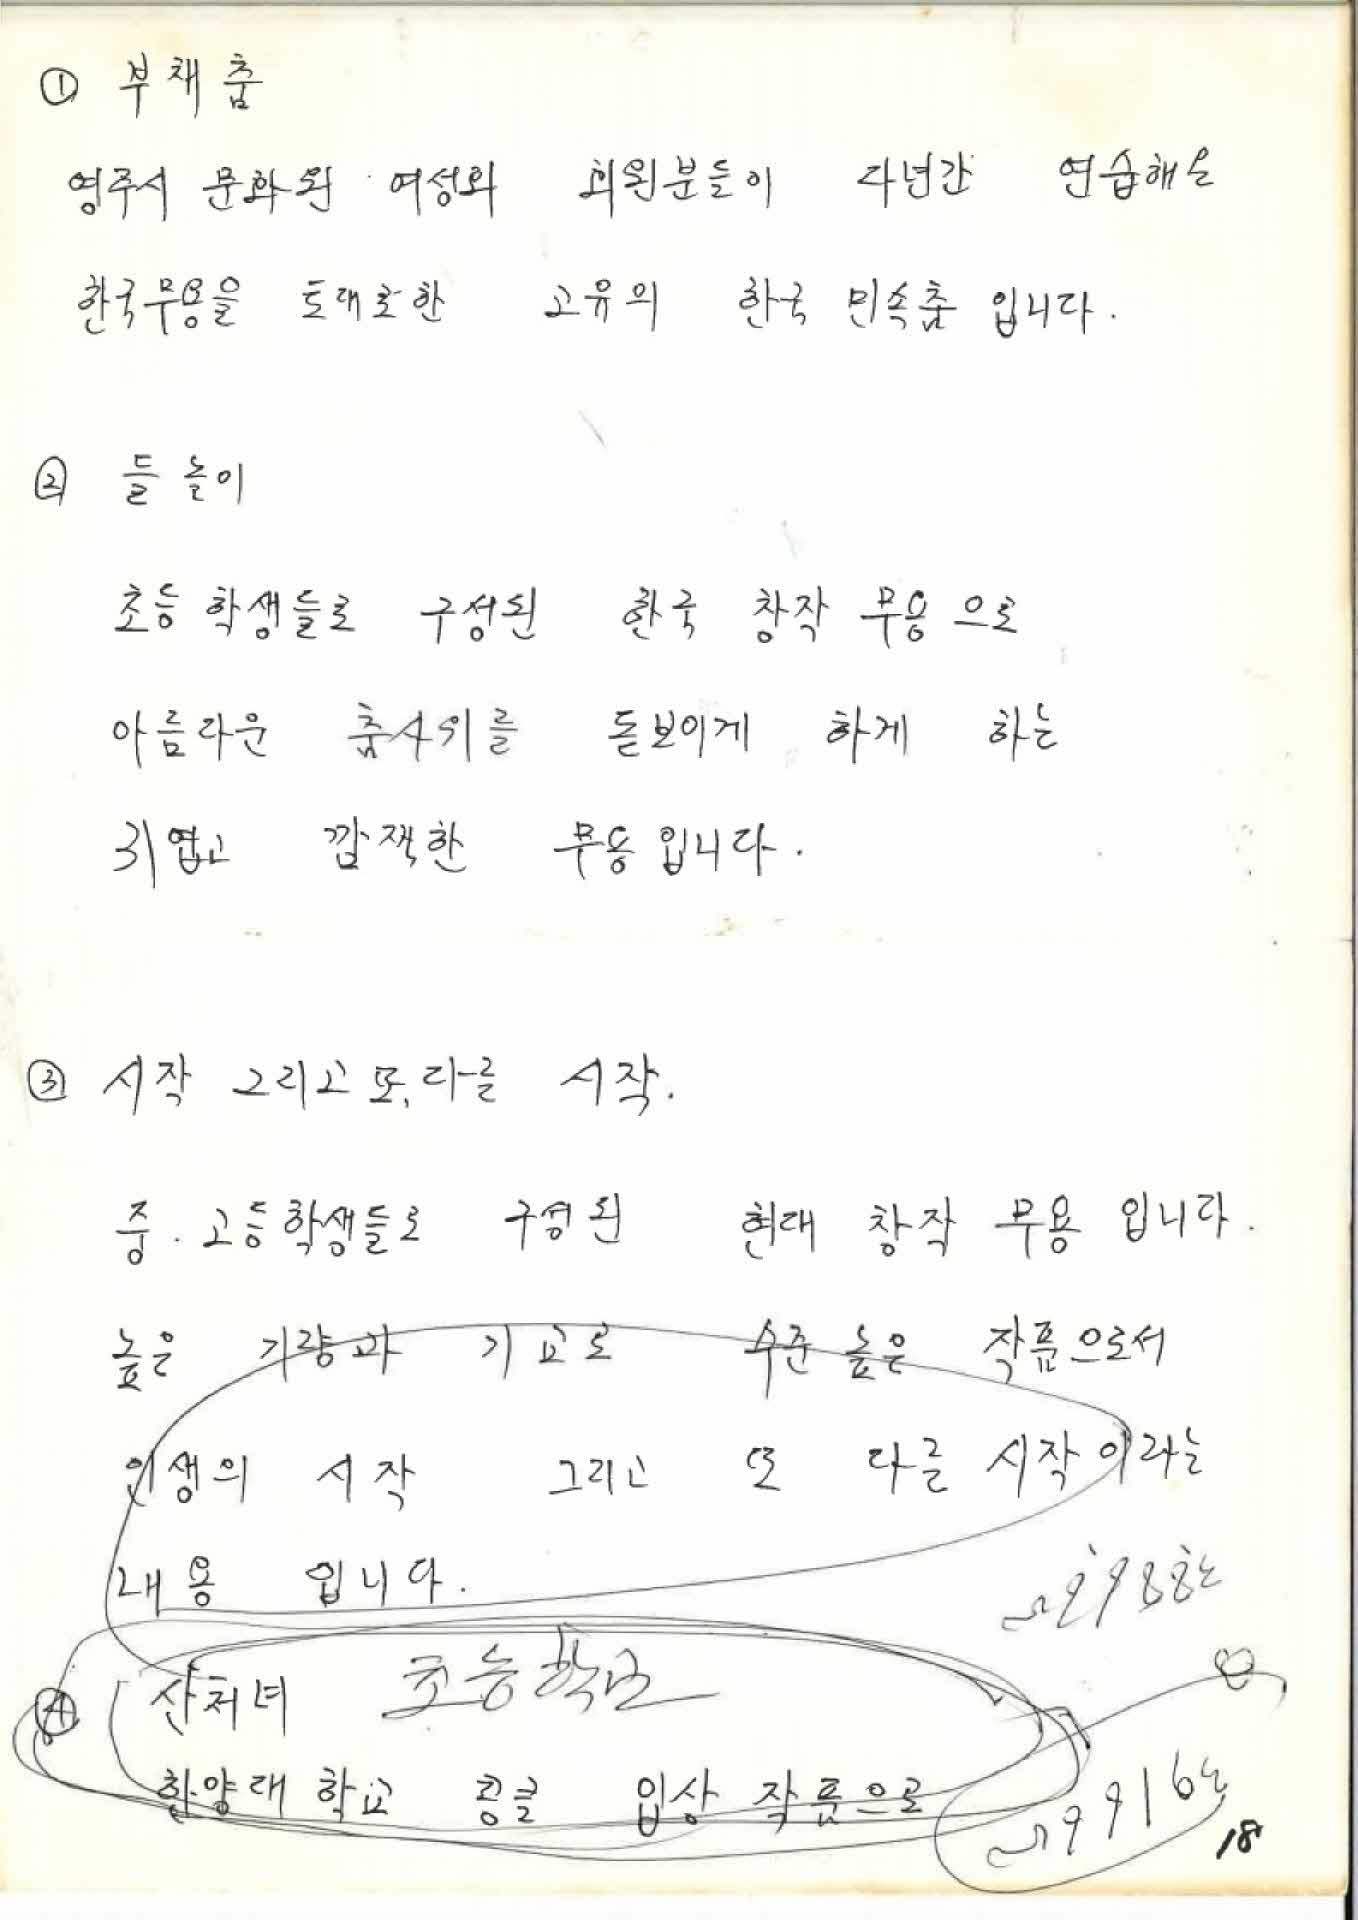 ① 부채춤
영주시 문화원 여성회 회원분들이 다년간 연습해온
한국무용을 토대로한 고유의 한국 민속춤 입니다.
② 들놀이
초등학생들로 구성된 한국 창작 무용으로
아름다운 춤사위를 돋보이게 하게 하는
귀엽고 깜찍한 무용입니다.
③ 시작 그리고 또, 다른 시작.
중. 고등학생들로 구성된 현대 창작 무용 입니다.
높은 기량과 기교로 수준 높은 작품으로서
인생의 시작 그리고 또 다른 시작이라는
내용 입니다.
④ 산처녀 초등학교
한양대학교 콩쿨 입상 작품으로
18